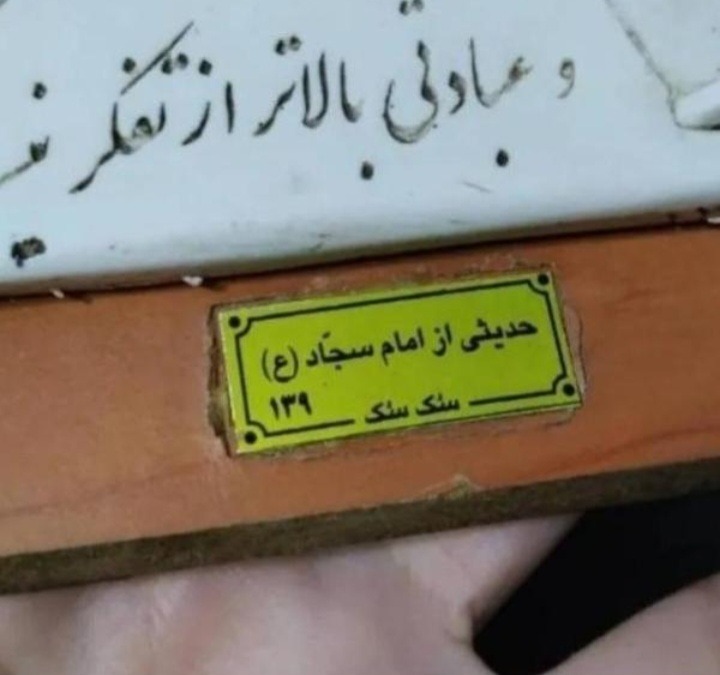 و عبادتی بالاتر از تفکر
حدیثی از امام سجّاد (ع)
سئک سئک
۱۳۹